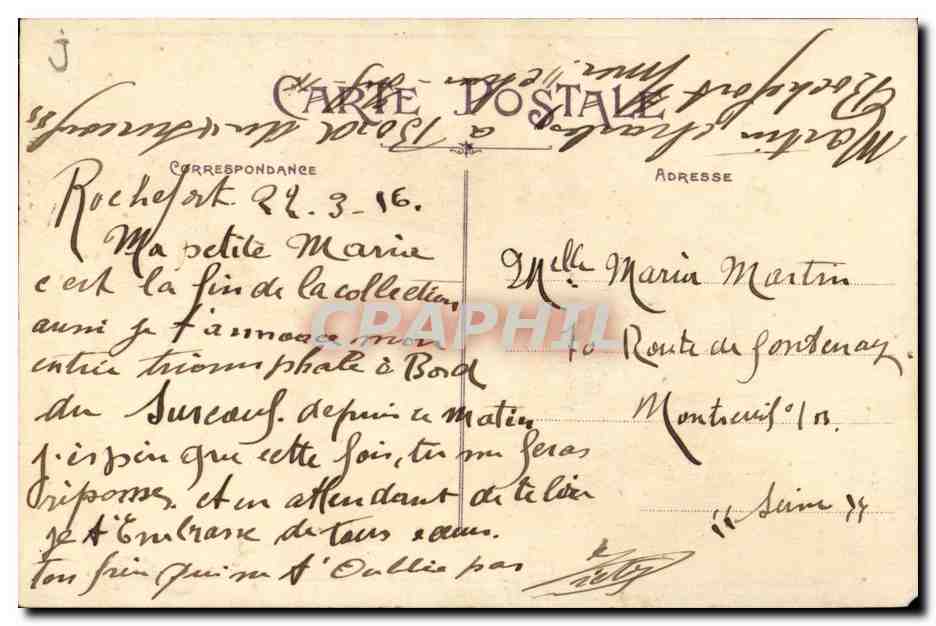 J
CARTE POSTALE
Martin Charles à Bord du "Surcouf"
Rochefort
CORRESPONDANCE
ADRESSE
Rochefort 22.3-16.
Ma petite Marie
c'est la fin de la collection
aussi je t'annonce mon
entrée triomphale à Bord
du Surcouf. depuis ce matin
j'espère que cette fois, tu me feras
réponse et en attendant de te lire
je t'Embrasse de tous cœur.
ton frère qui ne t'Oublie pas
Melle Maria Martin
10 Route de Fontenay.
Montreuil s/B.
"Seine"
CPAPHIL